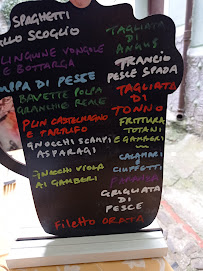 SPAGHETTI
ALLO SCOGLIO
LINGUINE VONGOLE
E BOTTARGA
ZUPPA DI PESCE
BAVETTE POLPA
GRANCHIO REALE
PLIN CASTELMAGNO
E TARTUFO
GNOCCHI SCAMPI
ASPARAGI
GNOCCHI VIOLA
AI GAMBERI
TAGLIATA DI
ANGUS
TRANCIO
PESCE SPADA
TAGLIATA
DI
TONNO
FRITTURA
TOTANI
E GAMBERI
CALAMARI
E
CIUFFETTI
GRIGLIATA
DI
PESCE
FILETTO ORATA